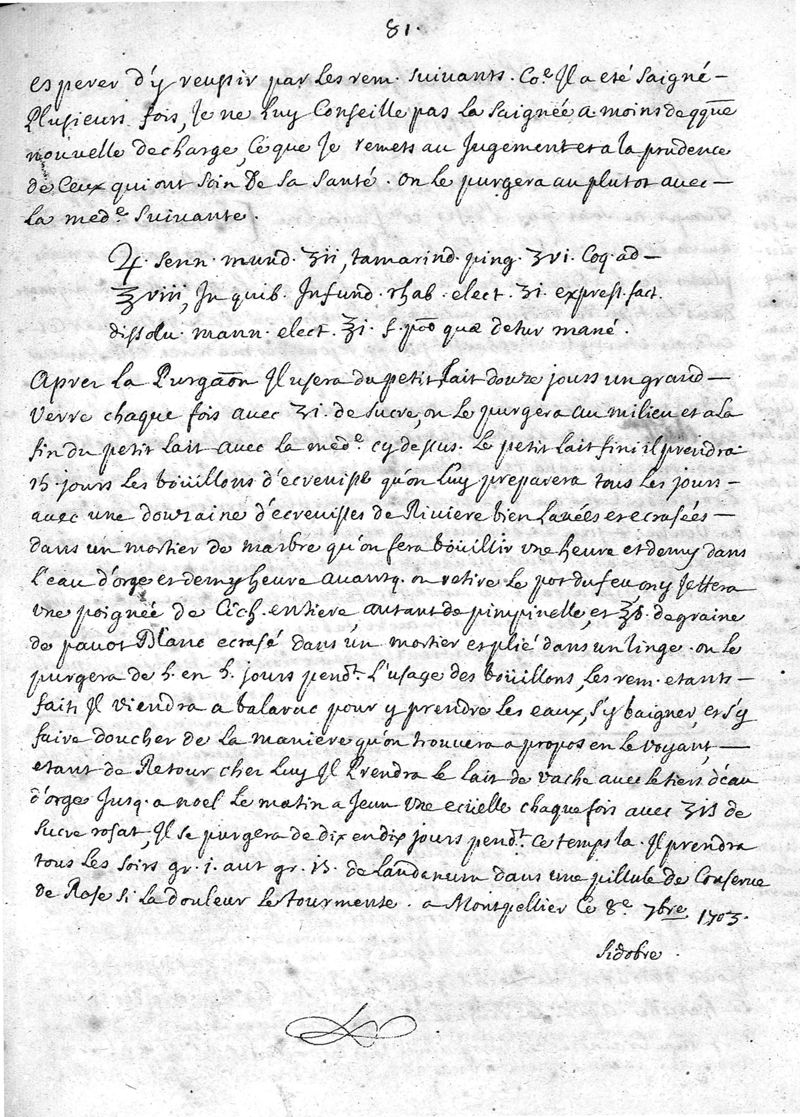 81.
esperer d'y reussir par les rem. suivants. Co.e Il a eté saigné –
Plusieurs fois, Je ne luy Conseille pas la saignée a moins de qque
nouvelle decharge, Ce que Je remets au Jugement et a la prudence
de Ceux qui ont soin De sa santé. on le purgera au plutot avec –
la med.e suivante.
♃. senn. mund. ʒii, tamarind. ping. ʒvi. Coq. ad –
℥viii, In quib. Infund. rhab. elect. ʒi. express. fact.
dissolu. mann. elect. ℥i. f. põõ quæ detur mane.
Aprez la Purgaõn Il usera du petit Lait douze jours un grand –
verre chaque fois avec ʒi. de sucre, on le purgera au milieu et a la
fin du petit lait avec la med.e cy dessus. Le petit lait fini il prendra
15. jours les bouillons d'écrevisse qu'on luy preparera tous les jours –
avec une douzaine d'écrevisses de Riviere bien Lavées et ecrasées –
dans un mortier de marbre qu'on fera boüillir une heure et demy dans
l'eau d'orge et demy heure avant q. on retire le pot du feu on y Jettera
une poignée de Cich. entiere, autant de pimpinelle, et ʒß. de graine
de pavot Blanc ecrasé dans un mortier et plié dans un linge. on le
purgera de 5. en 5. jours pend.t L'usage des boüillons, les rem. etants –
faits Il viendra a balaruc pour y prendre les eaux, s'y baigner, et s'y
faire doucher de la maniere qu'on trouvera a propos en le voyant, –
etant de Retour chez luy Il Prendra le lait de vache avec le tiers d'eau
d'orge Jusq. a noel le matin a Jeun une ecüelle chaque fois avec ʒiß de
sucre rosat, Il se purgera de dix en dix jours pend.t ce temps la. Il prendra
tous les soirs gr. i. aut gr. iß. de laudanum dans une pillule de Conserve
de Rose si la douleur le tourmente. a Montpellier Ce 8.e 7bre 1703.
sidobre.